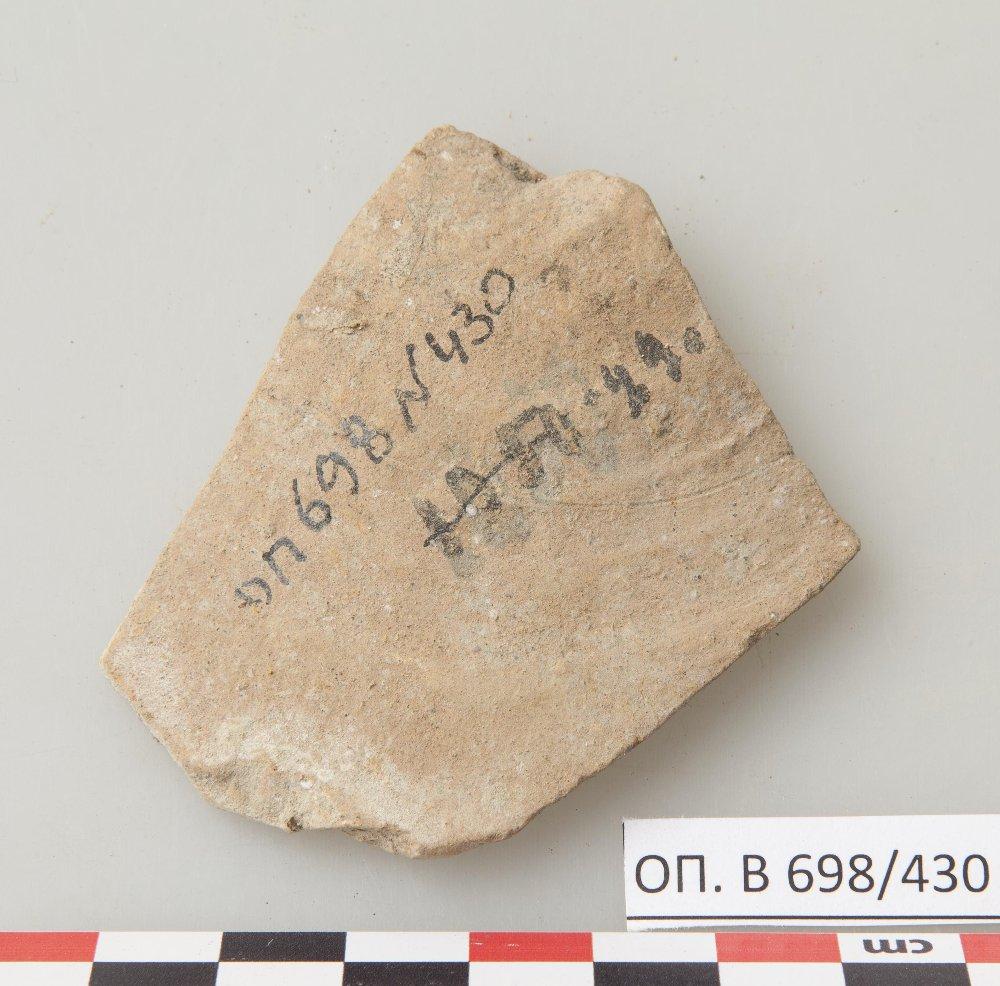 оп 698 N 430
ОП. В 698/430
cm